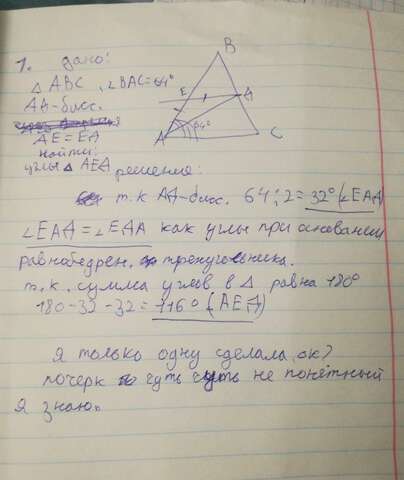 1. дано:
△ABC, ∠BAC=64°
АД-бисс.
AE=EД
найти:
углы △ AEД
B
E
Д
A
64°
C
решение:
т.к АД-бисс. 64:2=32° (∠EAД)
∠EAД=∠EДA как углы при основании
равнобедрен. треугольника.
т.к. сумма углов в △ равна 180°
180-32-32=116° (AEД)
Я только одну сделала, ок?
почерк чуть чуть не понятный
я знаю.